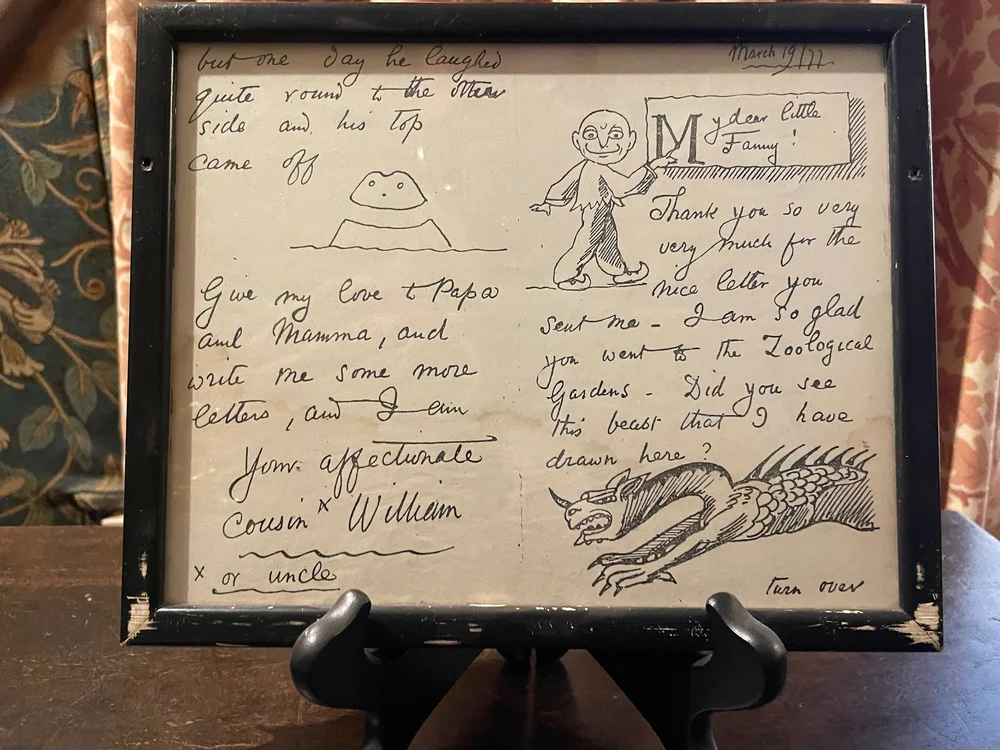 March 19/77
My dear little
Fanny!
Thank you so very
very much for the
nice letter you
sent me - I am so glad
you went to the Zoological
Gardens - Did you see
this beast that I have
drawn here?
turn over
but one day he laughed
quite round to the other
side and his top
came off
Give my love to Papa
and Mamma, and
write me some more
letters, and I am
Your affectionate
cousin x William
x or uncle